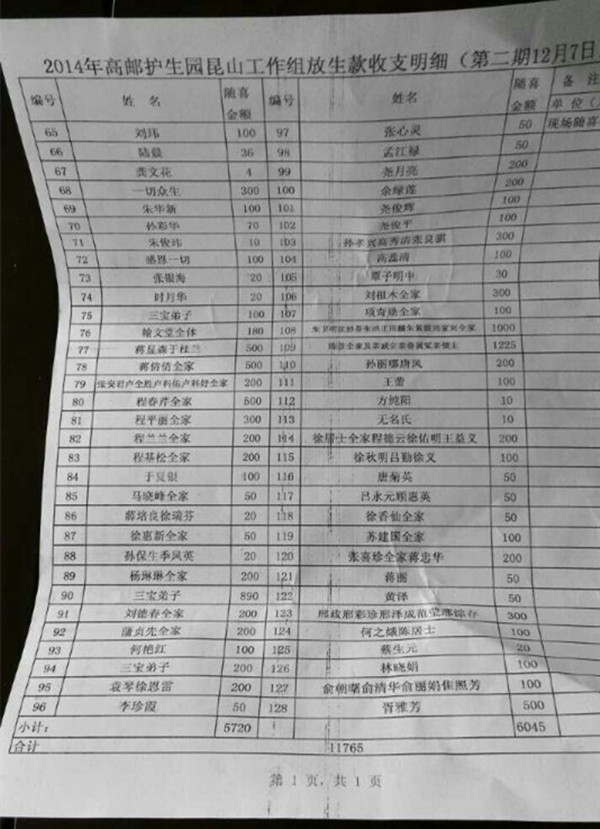 2014年高邮护生园昆山工作组放生款收支明细（第二期12月7日
编号 姓 名 随喜金额 编号 姓名 随喜金额 备 注
单 位（
65 刘玮 100 97 张心灵 50 现场随喜
66 陆晨 36 98 孟江禄 50
67 龚文花 4 99 尧月亮 200
68 一切众生 300 100 余绿莲 200
69 朱华新 100 101 尧俊辉 100
70 孙彩华 70 102 尧俊平 100
71 朱俊玮 10 103 300
72 感恩一切 100 104 高鑫清 100
73 张银海 20 105 覃子明中 30
74 时月华 20 106 刘祖木全家 300
75 三宝弟子 100 107 项育瑬全家 100
76 翰文堂全体 180 108 1000
77 蒋星森于桂兰 500 109 1225
78 蒋倩倩全家 500 110 孙丽娜唐风 200
79 200 111 王蕾 100
80 程春芹全家 500 112 方纯阳 10
81 程平丽全家 300 113 无名氏 10
82 程兰兰全家 200 114 徐居士全家程德云徐佑明王益义 200
83 程基松全家 200 115 徐秋明吕勤徐义 100
84 于夏银 100 116 唐菊英 50
85 马晓峰全家 50 117 吕永元顾惠英 50
86 薛培良徐瑞芬 20 118 徐香仙全家 50
87 徐惠新全家 50 119 苏建国全家 100
88 孙保生季凤英 20 120 张喜珍全家蒋忠华 200
89 杨琳琳全家 200 121 蒋丽 50
90 三宝弟子 890 122 黄泽 50
91 刘德春全家 200 123 300
92 蒲贞先全家 200 124 何之娥陈居士 100
93 何艳红 100 125 蔡生元 20
94 三宝弟子 200 126 林晓娟 100
95 袁琴徐恩雷 200 127 俞朝曙俞清华俞丽娟隹照芳 100
96 李珍霞 50 128 胥雅芳 500
小计： 5720 6045
合计 11765
第 1 页，共 1 页